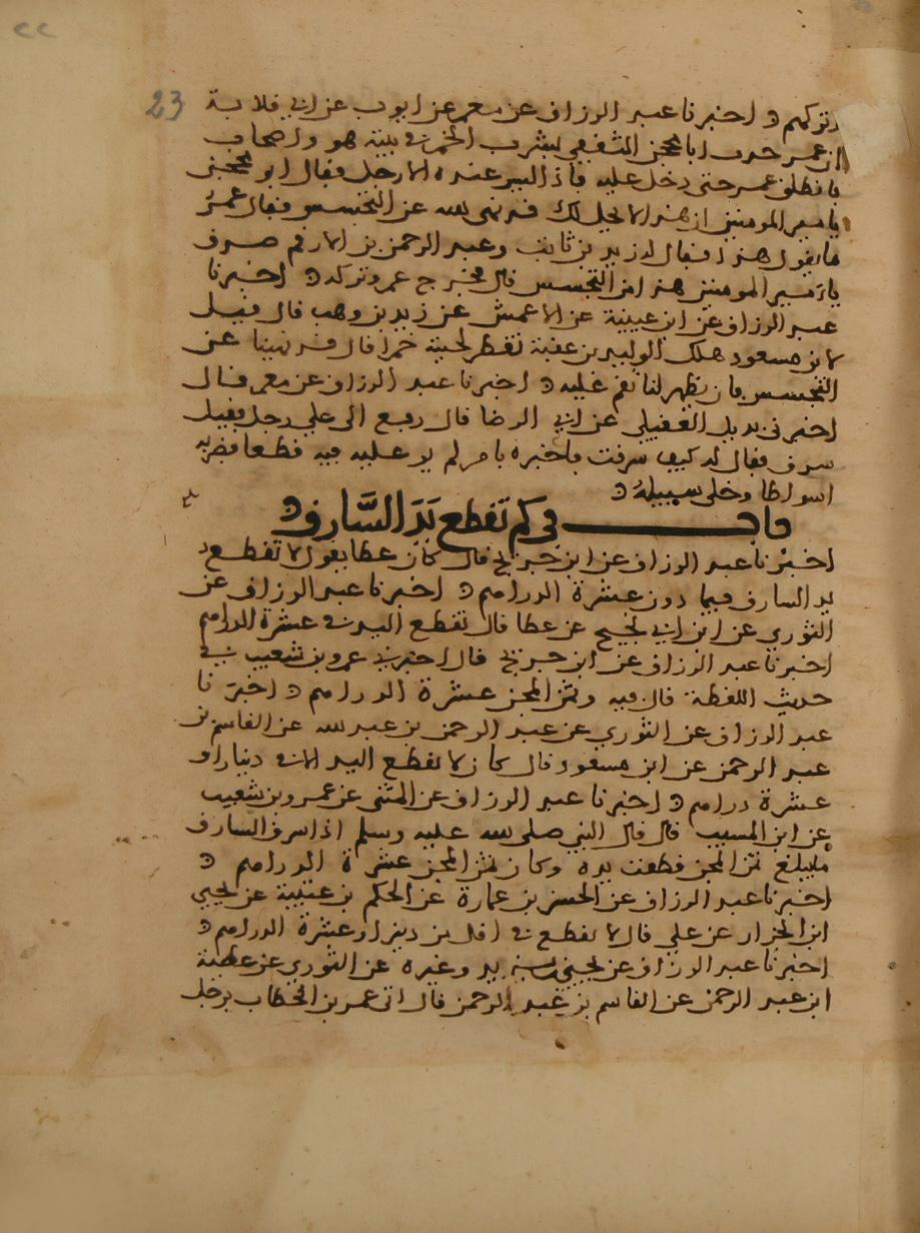 23
وتركهم اخبرنا عبد الرزاق عن معمر عن ايوب عن ابي قلابة
ان عمر حدث ان ابا محجن الثقفي يشرب الخمر في بيته هو واصحاب
فانطلق عمر حتى دخل عليه فاذا ليس عنده الا رجل فقال ابو محجن
يا امير المومنين ان هذا لا يحل لك قد نهى الله عن التجسس فقال عمر
ما يقول هذا فقال له زيد بن ثابت وعبد الرحمن بن الارقم صدق
يا امير المومنين هذا من التجسس قال فخرج عمر وتركه اخبرنا
عبد الرزاق عن ابن عيينة عن الاعمش عن زيد بن وهب قال قيل
لابن مسعود هلك الوليد بن عقبة تقطر لحيته خمرا قال قد نهينا عن
التجسس فان يظهر لنا نقم عليه اخبرنا عبد الرزاق عن معمر قال
اخبرني بديل العقيلي عن ابي الرضا قال رفع الى علي رجل فقيل
سرق فقال له كيف سرقت فاخبره بامر لم ير عليه فيه قطعا فضربه
اسواطا وخلى سبيله
باب في كم تقطع يد السارق
اخبرنا عبد الرزاق عن ابن جريج قال كان عطا يقول لا تقطع
يد السارق فيما دون عشرة الدراهم اخبرنا عبد الرزاق عن
الثوري عن ابن ابي نجيح عن عطا قال تقطع اليد في عشرة الدراهم
اخبرنا عبد الرزاق عن ابن جريج قال اخبرني عمرو بن شعيب في
حديث اللقطة قال فيه وثمن المجن عشرة الدراهم اخبرنا
عبد الرزاق عن الثوري عن عبد الرحمن بن عبد الله عن القاسم بن
عبد الرحمن عن ابن مسعود قال كان لا تقطع اليد الا في دينار او
عشرة دراهم اخبرنا عبد الرزاق عن المثنى عن عمرو بن شعيب
عن ابن المسيب قال قال النبي صلى الله عليه وسلم اذا سرق السارق
ما يبلغ ثمن المجن قطعت يده وكان ثمن المجن عشرة الدراهم
اخبرنا عبد الرزاق عن الحسن بن عمارة عن الحكم بن عتيبة عن يحيى
ابن الجزار عن علي قال لا يقطع في اقل من دينار او عشرة الدراهم
اخبرنا عبد الرزاق عن يحيى بن يزيد وغيره عن الثوري عن عطية
ابن عبد الرحمن عن القاسم بن عبد الرحمن قال اتى عمر بن الخطاب برجل